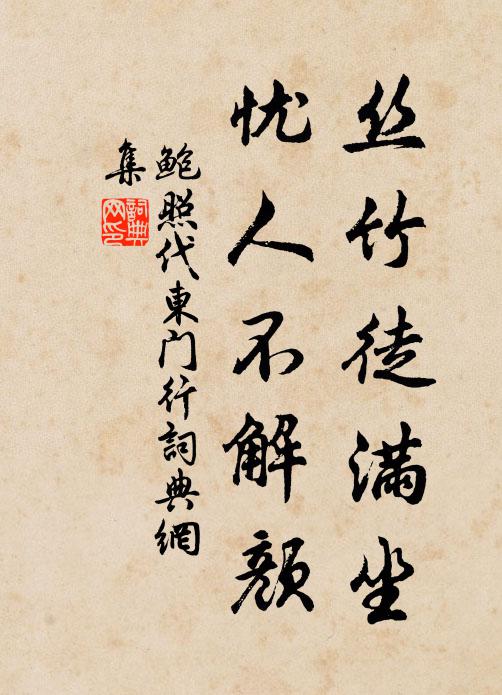 丝竹徒满坐
忧人不解颜
鲍照代東门行詞典網
集
詞典网印